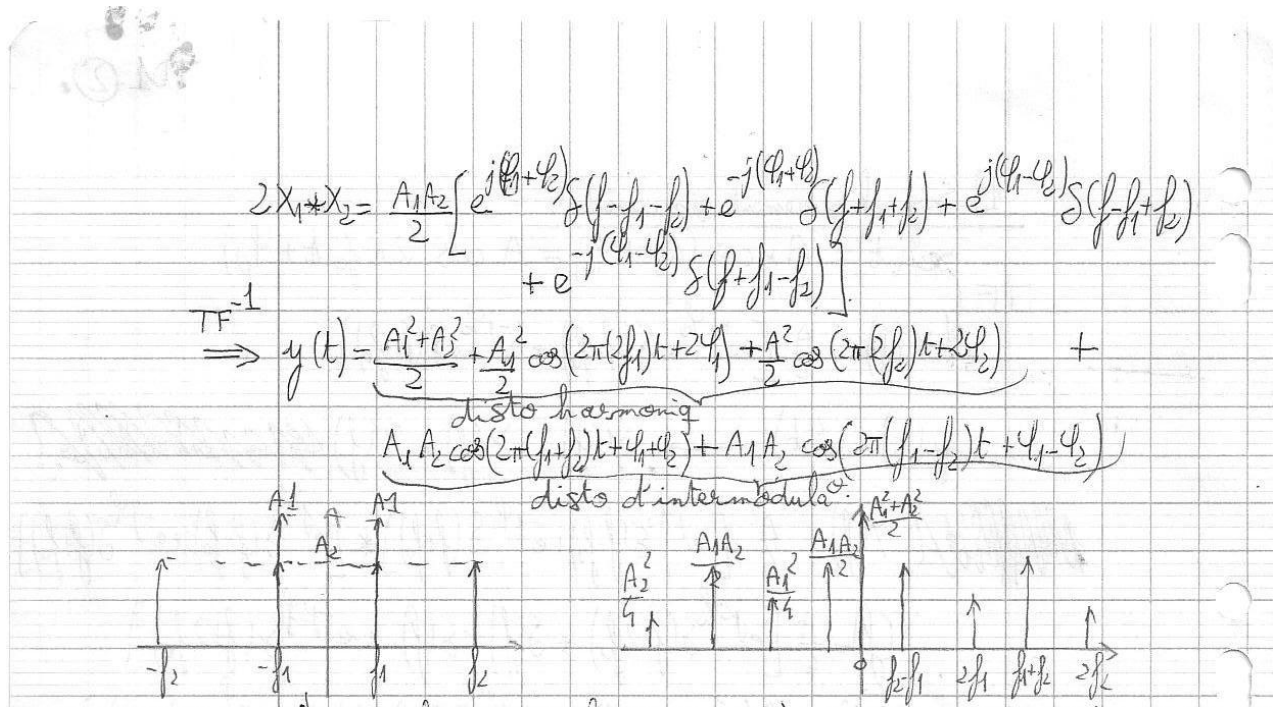 2X₁*X₂ = A₁A₂/2 [e^{j(φ₁+φ₂)} δ(f-f₁-f₂) + e^{-j(φ₁+φ₂)} δ(f+f₁+f₂) + e^{j(φ₁-φ₂)} δ(f-f₁+f₂)
+ e^{-j(φ₁-φ₂)} δ(f+f₁-f₂)].
TF⁻¹
⟹ y(t) = (A₁²+A₂²)/2 + A₁²/2 cos(2π(2f₁)t+2φ₁) + A²/2 cos(2π(2f₂)t+2φ₂) +
disto harmoniq
A₁A₂ cos(2π(f₁+f₂)t+φ₁+φ₂) + A₁A₂ cos(2π(f₁-f₂)t+φ₁-φ₂)
disto d'intermodula°.
A1 A1 (A₁²+A₂²)/2
A₂ A₂²/4 A₁A₂/2 A₁²/4 A₁A₂/2
-f₂ -f₁ f₁ f₂ 0 f₂-f₁ 2f₁ f₁+f₂ 2f₂